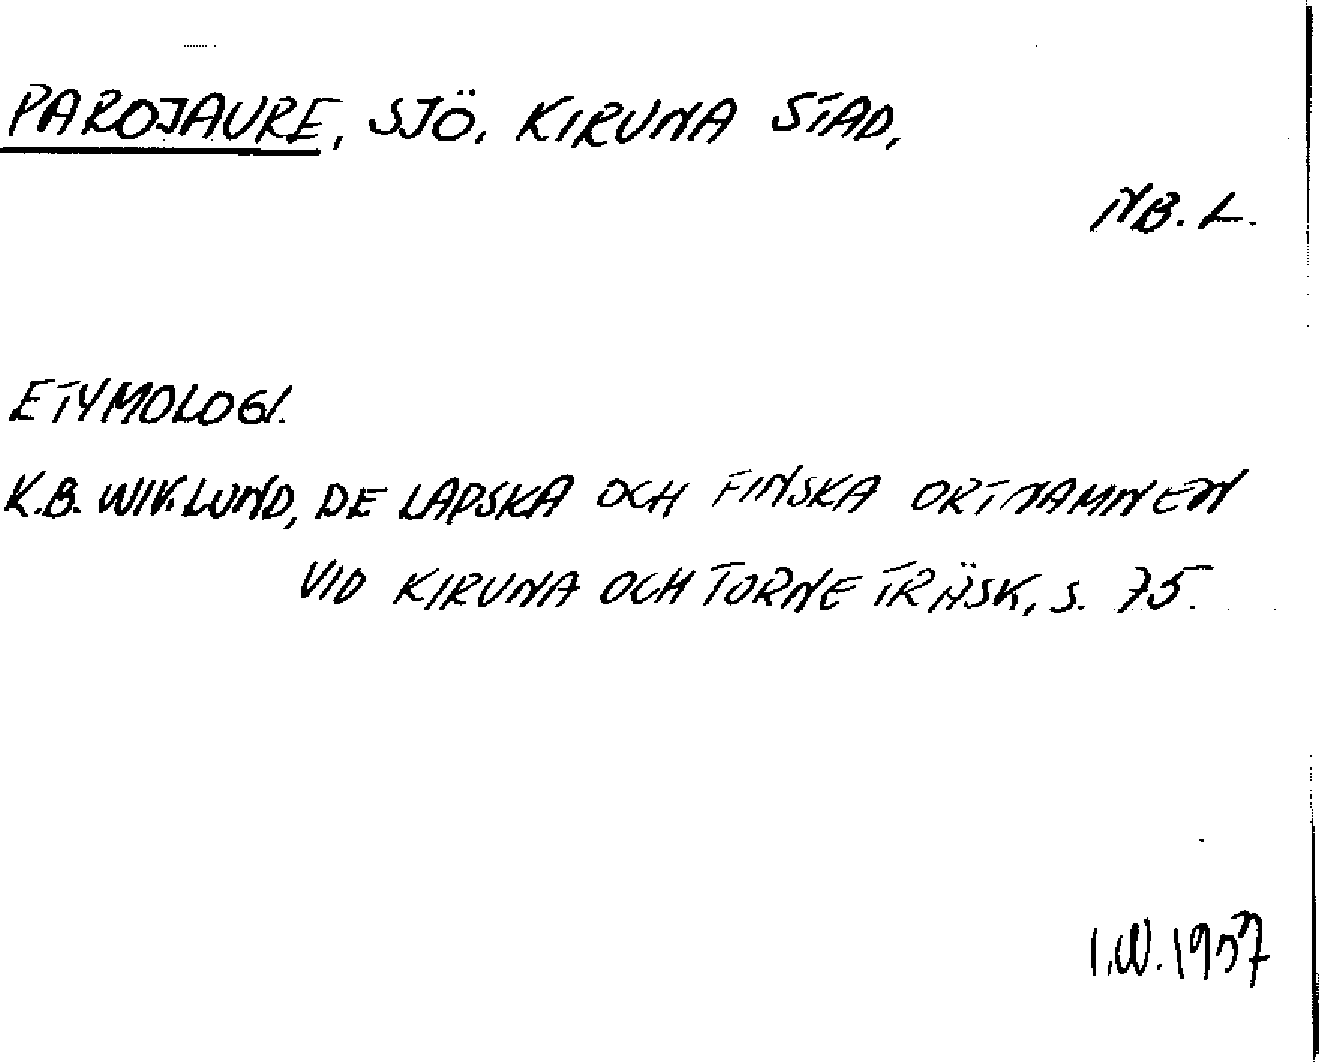 PAROJAURE, SJÖ. KIRUNA STAD,
NB. L.
ETYMOLOGI.
K.B. WIKLUND, DE LAPSKA OCH FINSKA ORTNAMNEN
VID KIRUNA OCH TORNE TRÄSK, S. 75.
I.W. 1957